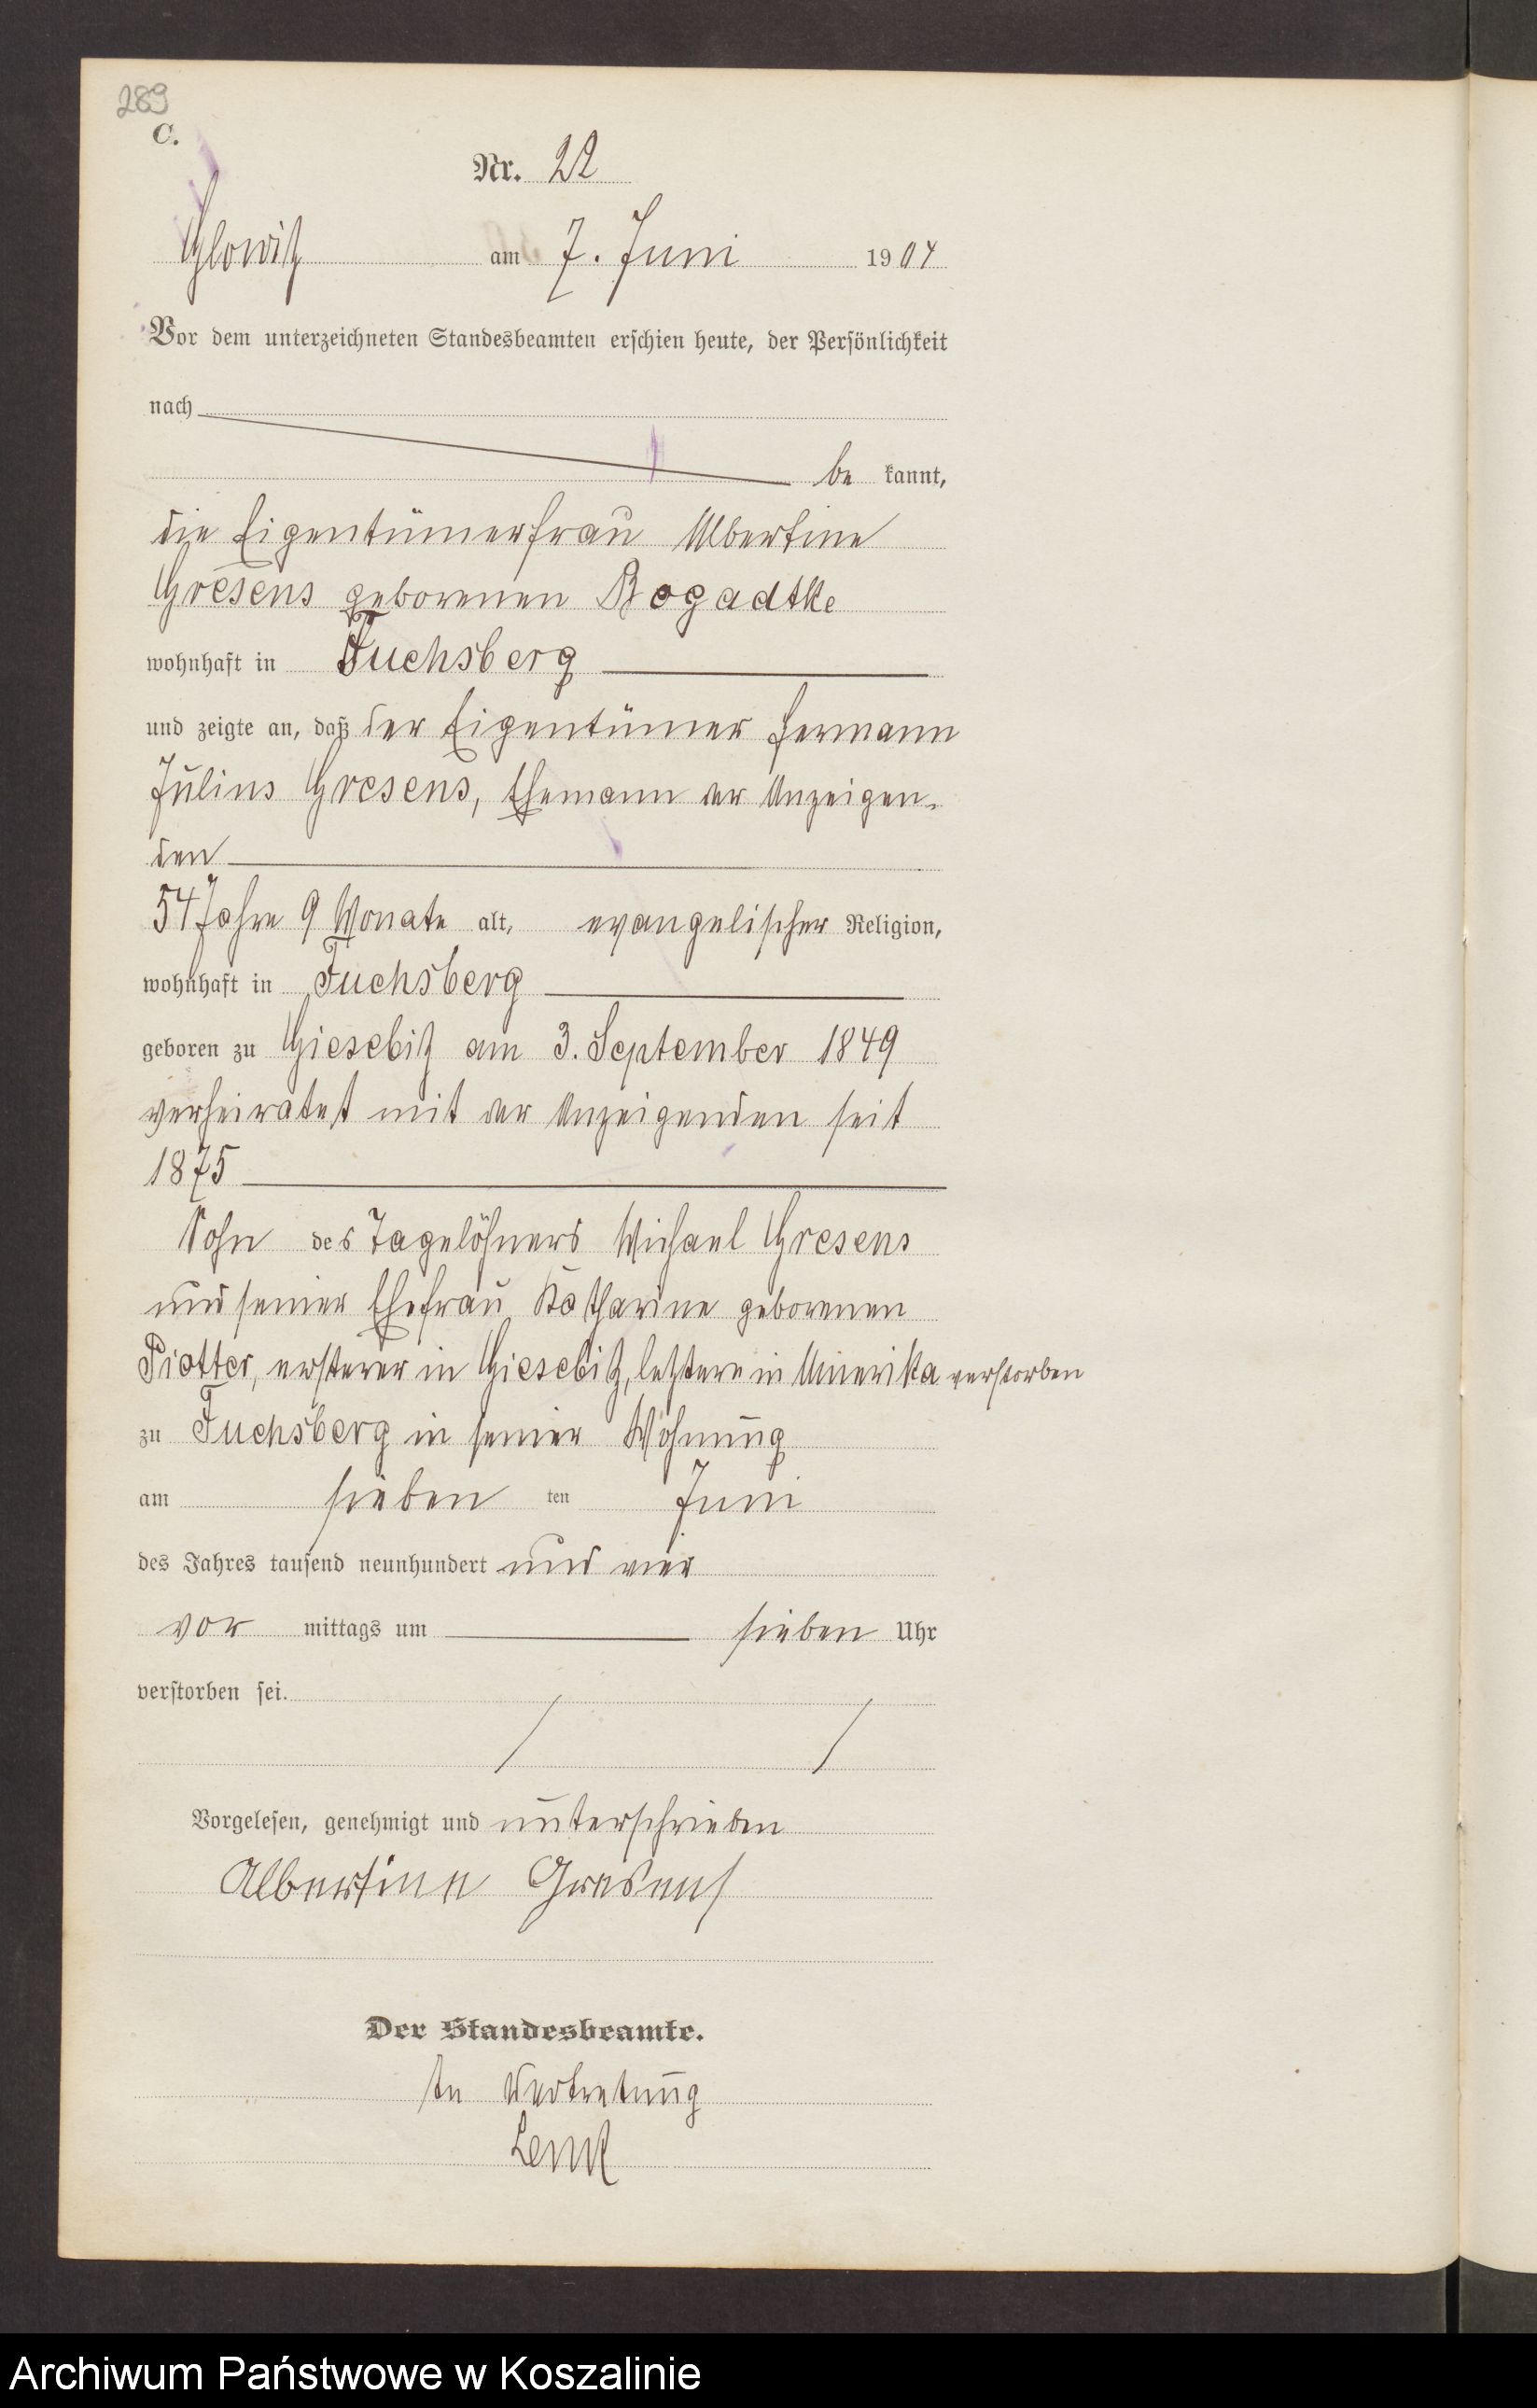 289
C.
Nr. 22
Glowitz am 7. Juni 1904
Vor dem unterzeichneten Standesbeamten erschien heute, der Persönlichkeit
nach
be kannt,
die Eigentümerfrau Albertine
Gresens geborenen Bogadtke
wohnhaft in Fuchsberg
und zeigte an, daß der Eigentümer Hermann
Julius Gresens, Ehemann der Anzeigen-
den
54 Jahre 9 Monate alt, evangelischer Religion,
wohnhaft in Fuchsberg
geboren zu Giesebitz am 3. September 1849
verheiratet mit der Anzeigenden seit
1875
Sohn des Tagelöhners Michael Gresens
und seiner Ehefrau Katharine geborenen
Piotter, ersterer in Giesebitz, letztere in Amerika verstorben
zu Fuchsberg in seiner Wohnung
am sieben ten Juni
des Jahres tausend neunhundert und vier
vor mittags um sieben Uhr
verstorben sei.
Vorgelesen, genehmigt und unterschrieben
Albertine Gresens
Der Standesbeamte.
In Vertretung
Lenk
Archiwum Państwowe w Koszalinie